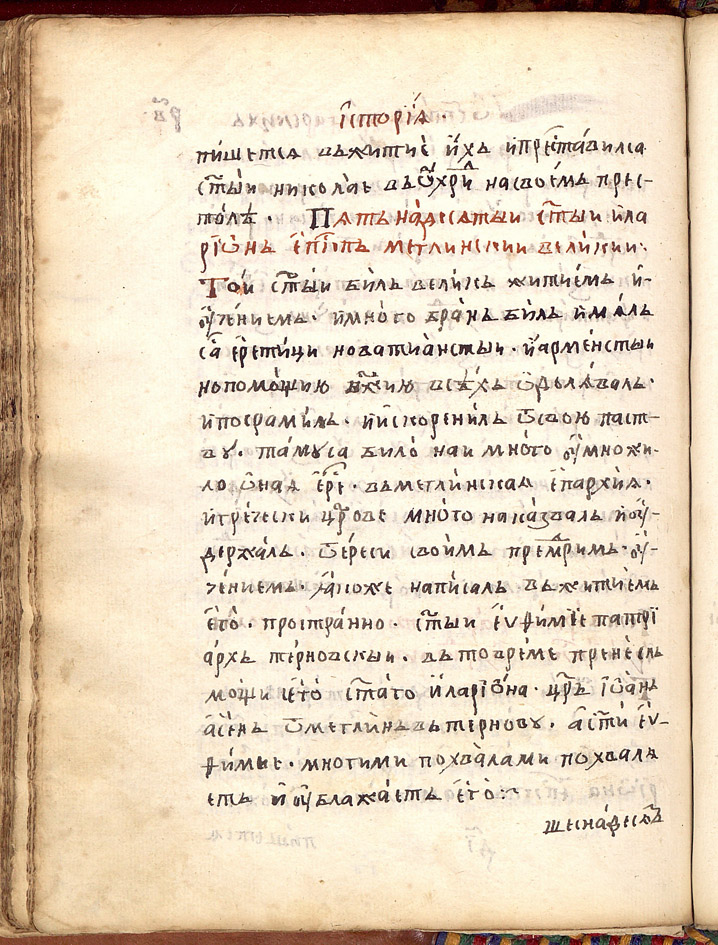 їсторїѧ ·
пишетсѧ въжитиѐ и҆хъ ипреⷭ҇тавилсѧ
ст҃ыи николае въѡ҆хриⷣ насвоемъ прес-
толѣ · Пѧтьнадесѧтыи ст҃ыи ила
рїѡнъ е҆пⷭ҇кїпъ меглинскии велики ·
Тои ст҃ыи билъ великъ житиемъ и҆-
ѹ҆чениемъ · имного брань билъ ималъ
са еретици новатиа̀нстыи · иарменстыи
нопомощию бж҃ию всѣхъ ѡдолѣвалъ ·
ипосрамилъ · иискоренилъ ѿсвою паст-
вꙋ · тамꙋса било наи много ѹ҆множи-
ло ѡная е҆ре · въмеглинскаѧ епархїѧ ·
игречески цр҃ове много наказвалъ иѹ҆-
держалъ · ѿереси своимъ премⷣримъ · ѹ҆-
чениемъ · ꙗкоже написалъ въжитиемъ
его · пространно · ст҃ыи еѵѳимїе патрї
архъ терновскыи · въвовреме пренеслъ
мощи его ст҃аго иларїѡна · цр҃ъ їѡань
асѣнь ѿмеглинъ въ терновꙋ · аст҃и еѵ-
ѳимие · многими похвалами похвалѧ
етъ иѹ҆блажаетъ его :~
шеснадесеⷮ